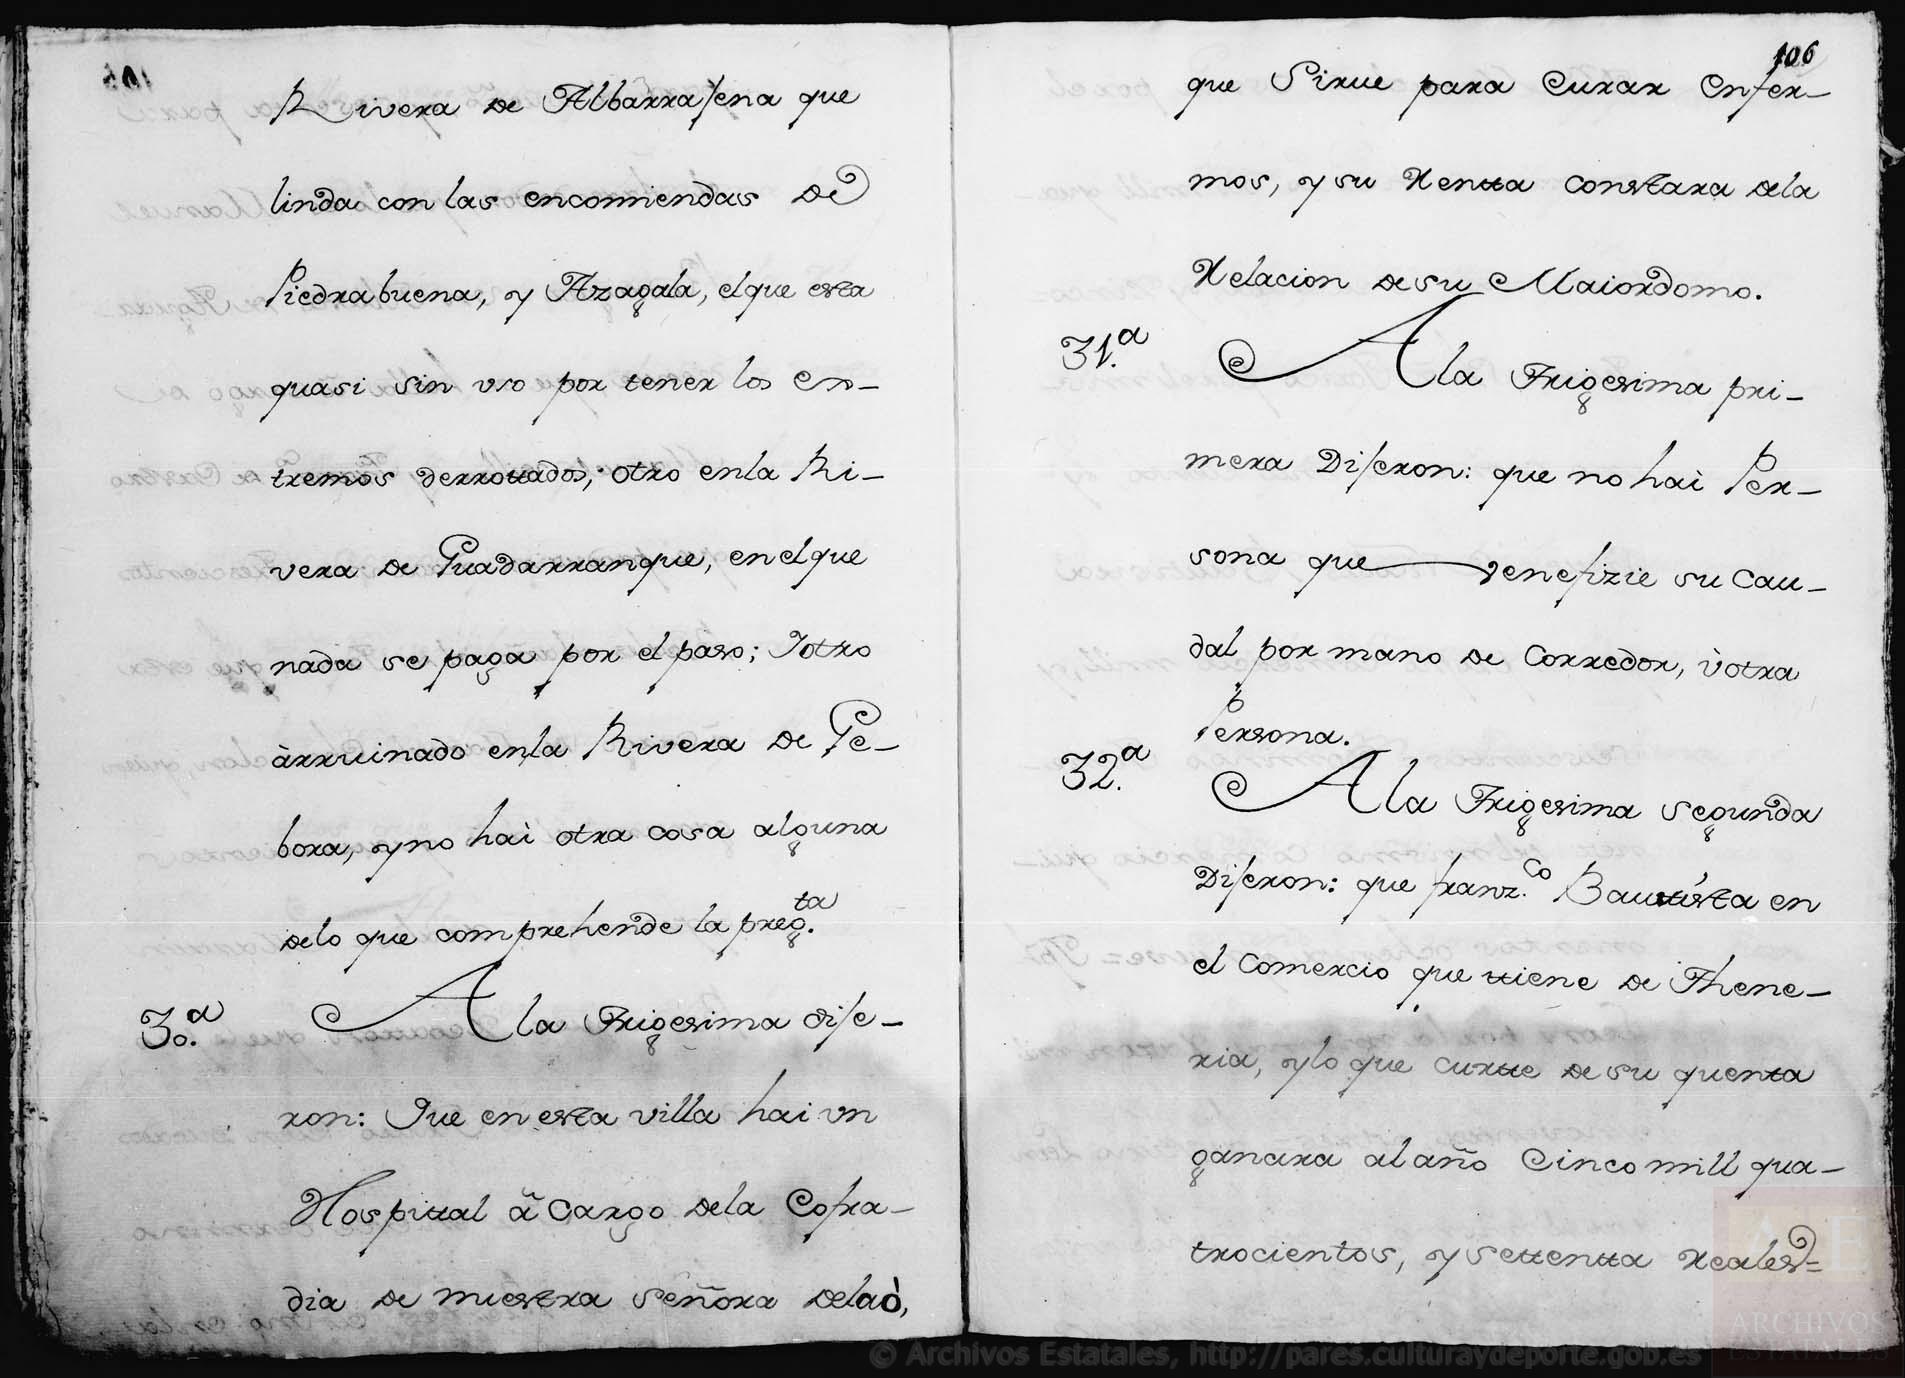 Rivera de Albarrajena que
linda con las encomiendas de
Piedrabuena, y Azagala, el que esta
quasi sin vso por tener los ex-
tremos derrottados; otro en la Ri-
vera de Guadarranque, en el que
nada se paga por el paso; Iotro
àrruinado en la Rivera de Ge-
bora, y no hai otra cosa alguna
de lo que comprehende la preg.ta
30.a A la Trigesima dije-
ron: Que en esta villa hai vn
Hospittal â cargo dela Cofra-
dia de nuestra Señora delaò,
106
que Sirue para Curar Enfer-
mos, y su Rentta constara dela
Relacion de su Maiordomo.
31.a A la Trigesima pri-
mera Dijeron: que no hai Per-
sona que venefizie su cau-
dal por mano de Corredor, ù otra
Persona.
32.a A la Trigesima segunda
Dijeron: que franz.co Bauttista en
el Comercio que ttiene de Thene-
ria, y lo que curtte de su quentta
ganara al año Cinco mill qua-
trocientos, y Settentta Reales=
© Archivos Estatales, http://pares.culturaydeporte.gob.es
AE
ARCHIVOS
ESTATALES